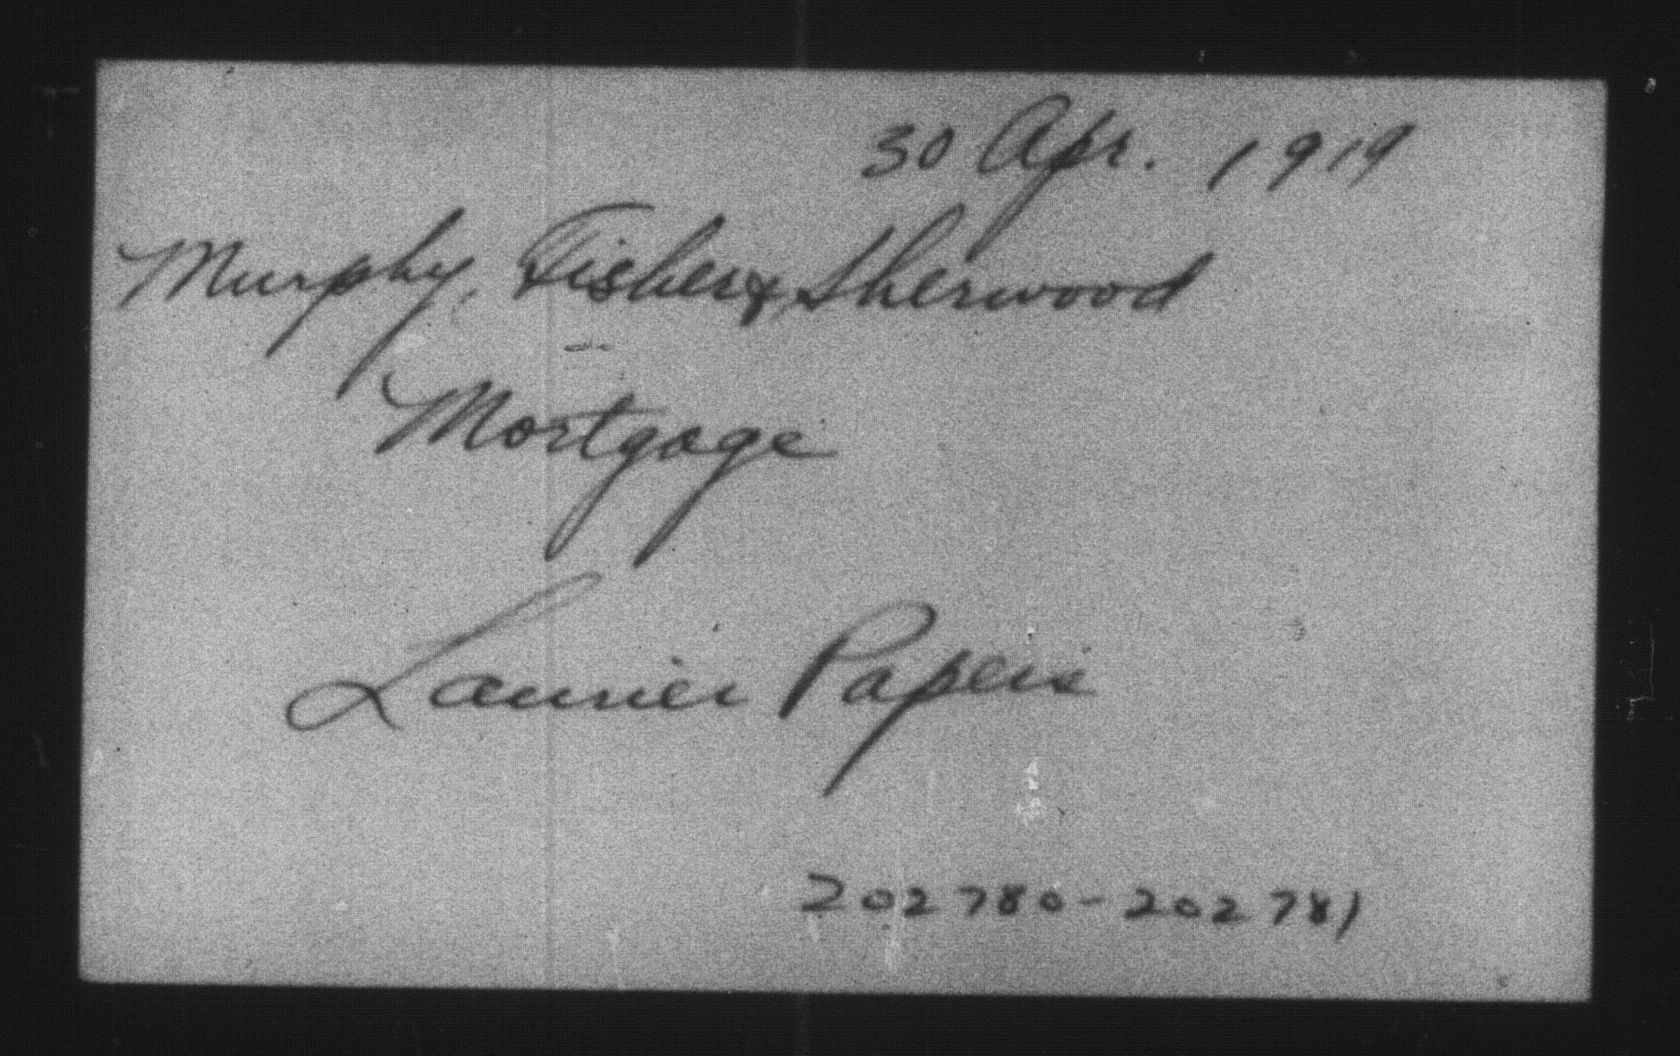 30 Apr. 1919
Murphy, Fisher & Sherwood
Mortgage
Laurier Papers
202780-202781